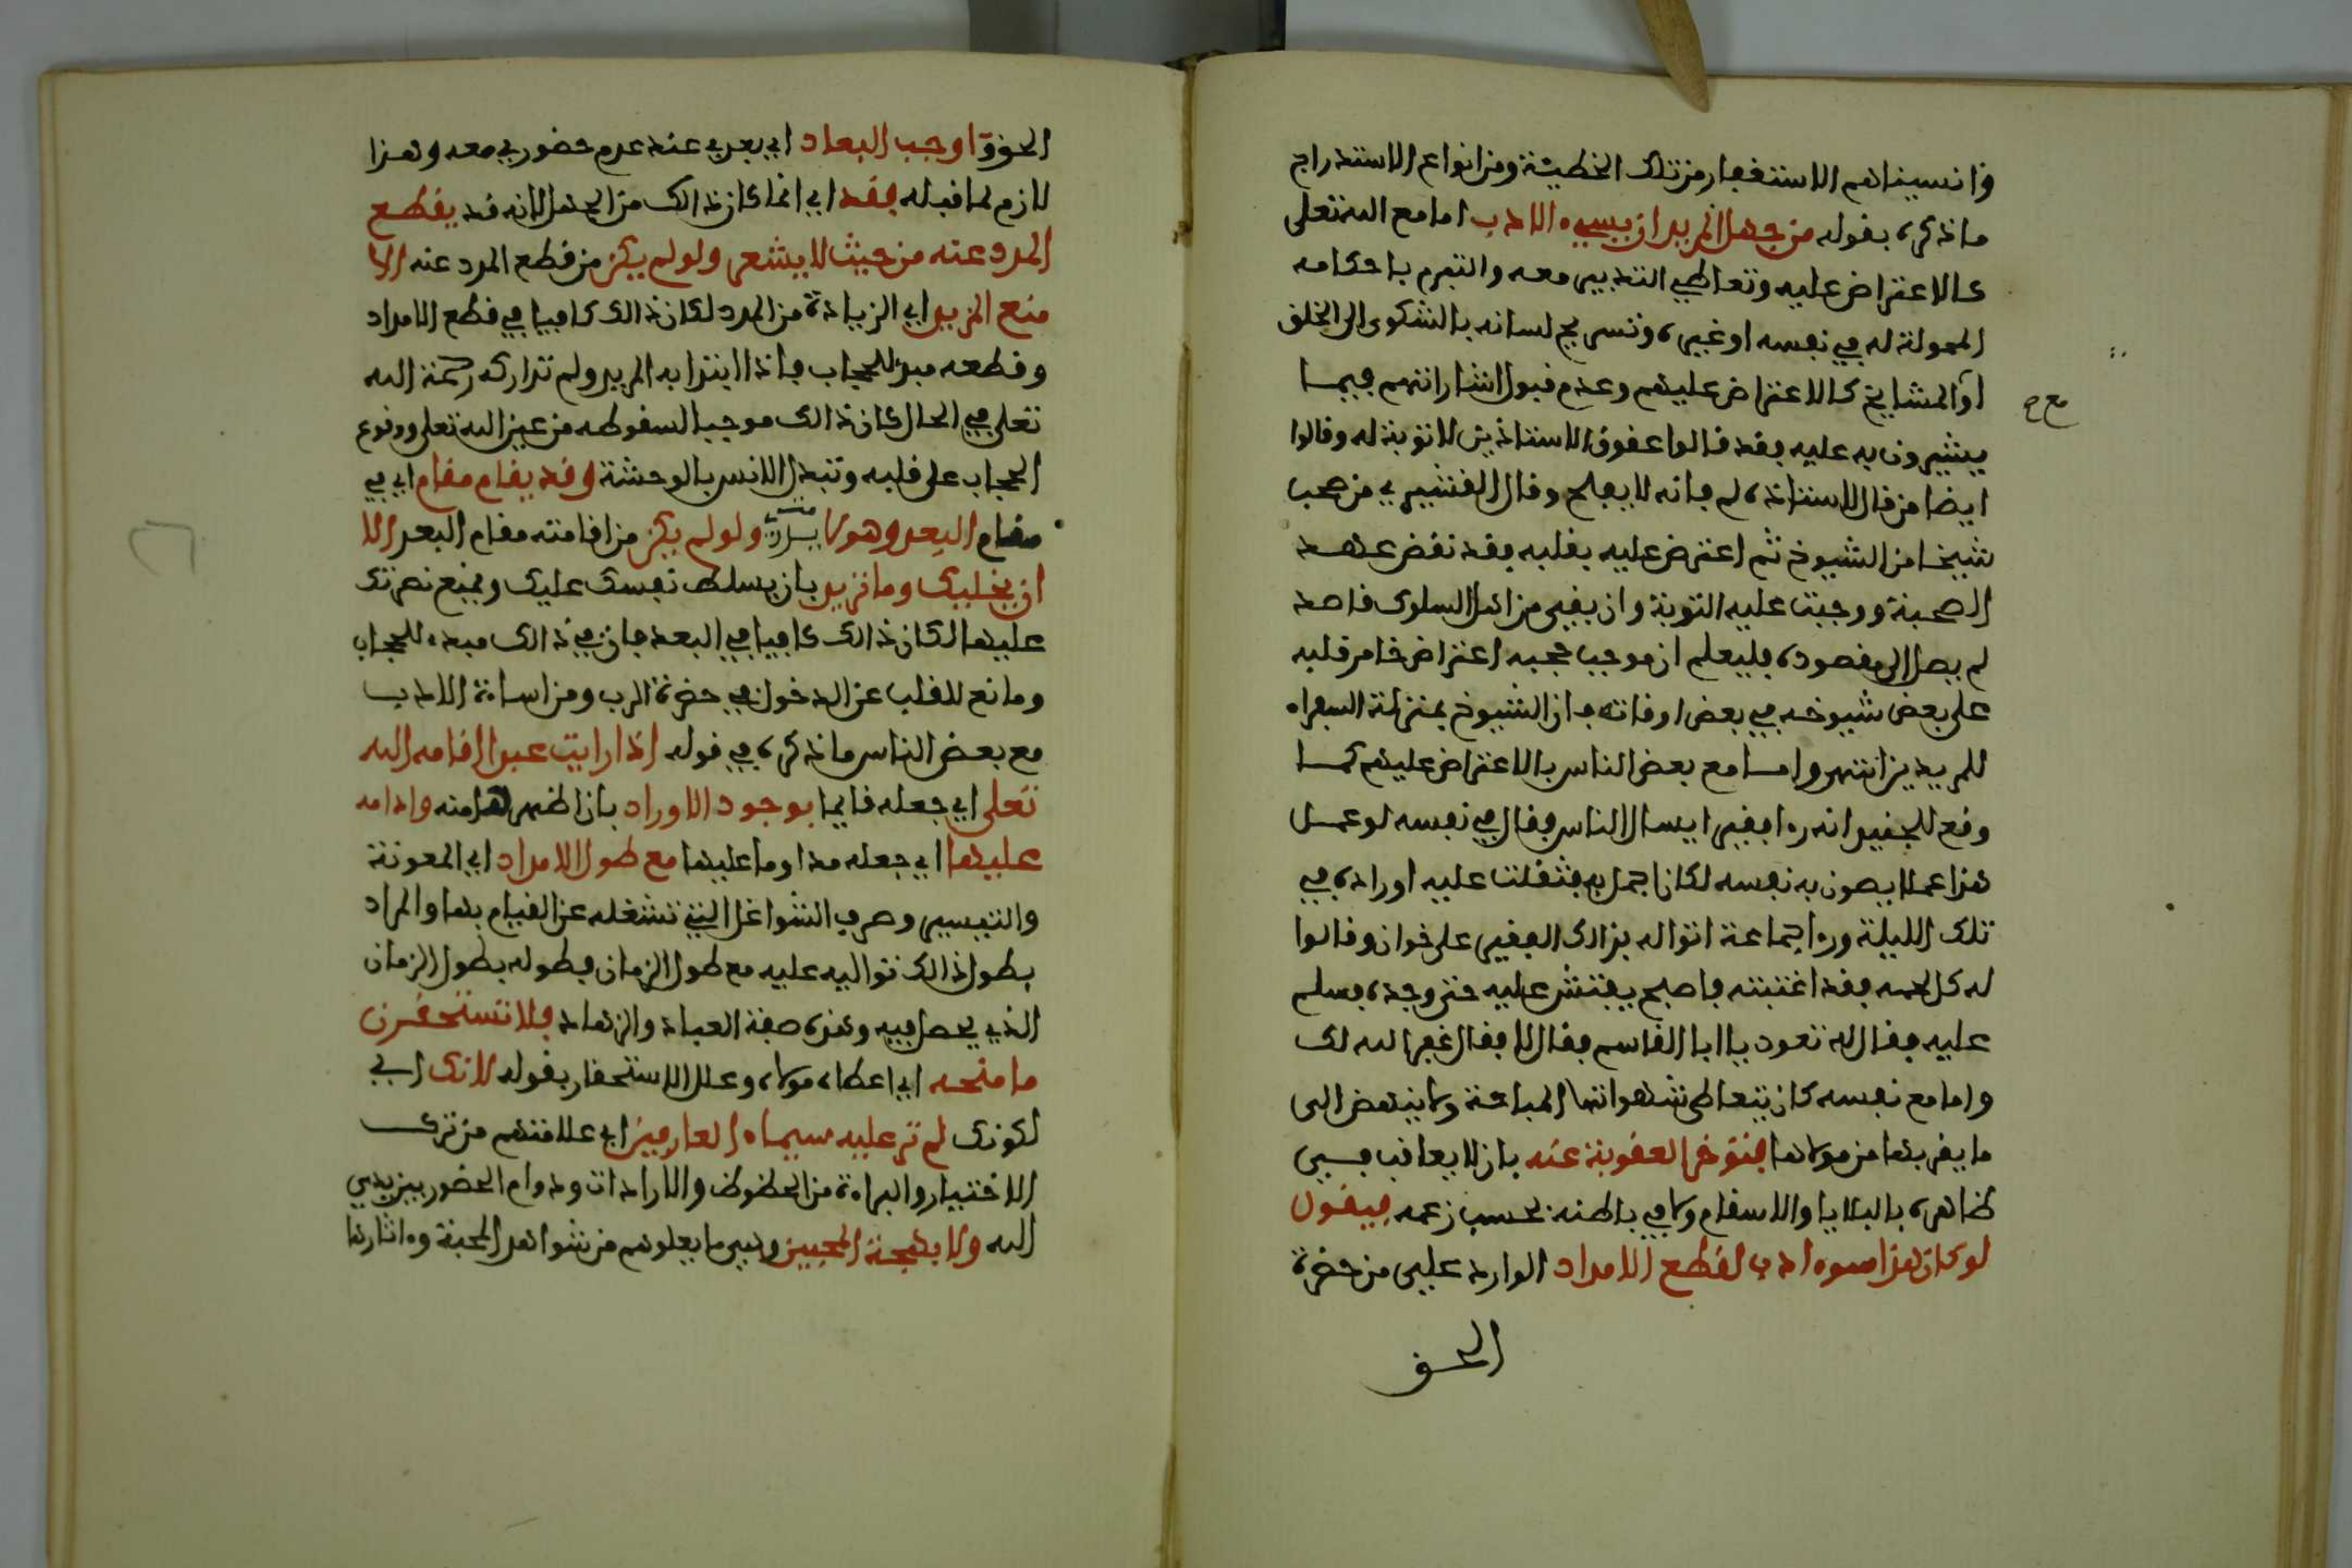 وانسيناهم الاستغفار من تلك الخطيئة ومن انواع الاستدراج
ما ذكره بقوله من جهل المريد ان يسيء الادب اما مع الله تعلى
كالاعتراض عليه وتعاطي التدبير معه والتبرم باحكامه
المولمة له في نفسه او غيره وتسريح لسانه بالشكوى الى الخلق
او المشايخ كالاعتراض عليهم وعدم قبول اشاراتهم فيما
يشيرون به عليه فقد قالوا عقوق الاستاذين لا توبة له وقالوا
ايضا من قال لاستاذه لم فانه لا يفلح وقال القشيري من صحب
شيخا من الشيوخ ثم اعترض عليه بقلبه فقد نقض عهد
الصحبة ووجبت عليه التوبة وان بقي من اهل السلوك قاصد
لم يصل الى مقصوده فليعلم ان موجب حجبه اعتراض خامر قلبه
على بعض شيوخه في بعض اوقاته فان الشيوخ بمنزلة السفراء
للمريدين انتهى واما مع بعض الناس بالاعتراض عليهم كما
وقع للجنيد انه رءا فقيرا يسال الناس فقال في نفسه لو عمل
هذا عملا يصون به نفسه لكان اجمل به فثقلت عليه اوراده في
تلك الليلة ورءا جماعة اتوا له بذالك الفقير على خوان وقالوا
له كل لحمه فقد اغتبته فاصبح يفتش عليه حتى وجده فسلم
عليه فقال له تعود يا ابا القاسم فقال لا فقال غفر الله لك
واما مع نفسه كان يتعاطى شهواتها المباحة ولا ينهض الى
ما يقربها من مولاها فتوخر العقوبة عنه بان لا يعاقب في
ظاهره بالبلايا والاسقام ولا في باطنه بحسب زعمه فيقول
لو كان هذا سوء ادب لقطع الامداد الوارد علي من حضرة
الحق
مع ح
الحق واوجب البعاد اي بعدي عند عدم حضوري معه وهذا
لازم لما قبله فقد اي انما كان ذالك من الجهل لانه قد يقطع
المدد عنه من حيث لا يشعر ولو لم يكن من قطع المدد عنه الا
منع المزيد اي الزيادة من المدد لكان ذالك كافيا في قطع الامداد
وقطعه مبدا للحجاب فاذا ابتدا به المريد ولم تداركه رحمة الله
تعلى في الحال كان ذالك موجبا لسقوطه من عين الله تعلى ووقوع
الحجاب على قلبه وتبدل الانس بالوحشة وقد يقام مقام اي في
مقام البعد وهو لا يدري ولو لم يكن من اقامته مقام البعد الا
ان يخليك وما تريد بان يسلط نفسك عليك ويمنع نصرتك
عليها لكان ذالك كافيا في البعد فان في ذالك مبدء للحجاب
ومانع للقلب عن الدخول في حضرة الرب ومن اساءة الادب
مع بعض الناس ما ذكره في قوله اذا رايت عبدا اقامه الله
تعلى اي جعله قايما بوجود الاوراد بان اظهرها منه وادامه
عليها اي جعله مداوما عليها مع طول الامداد اي المعونة
والتيسير وصرف الشواغل التي تشغله عن القيام بها والمراد
بطول ذالك تواليه عليه مع طول الزمان فطوله بطول الزمان
الذي يحصل فيه وهذه صفة العباد والزهاد فلا تستحقرن
ما منحه اي اعطاه مولاه وعلل الاستحقار بقوله لانك اي
لكونك لم تر عليه سيماء العارفين اي علامتهم من ترك
الاختيار والبراءة من الحظوظ والارادات ودوام الحضور بين يدي
الله ولا بهجة المحبين وهي ما يعلوهم من شواهد المحبة وءاثارها